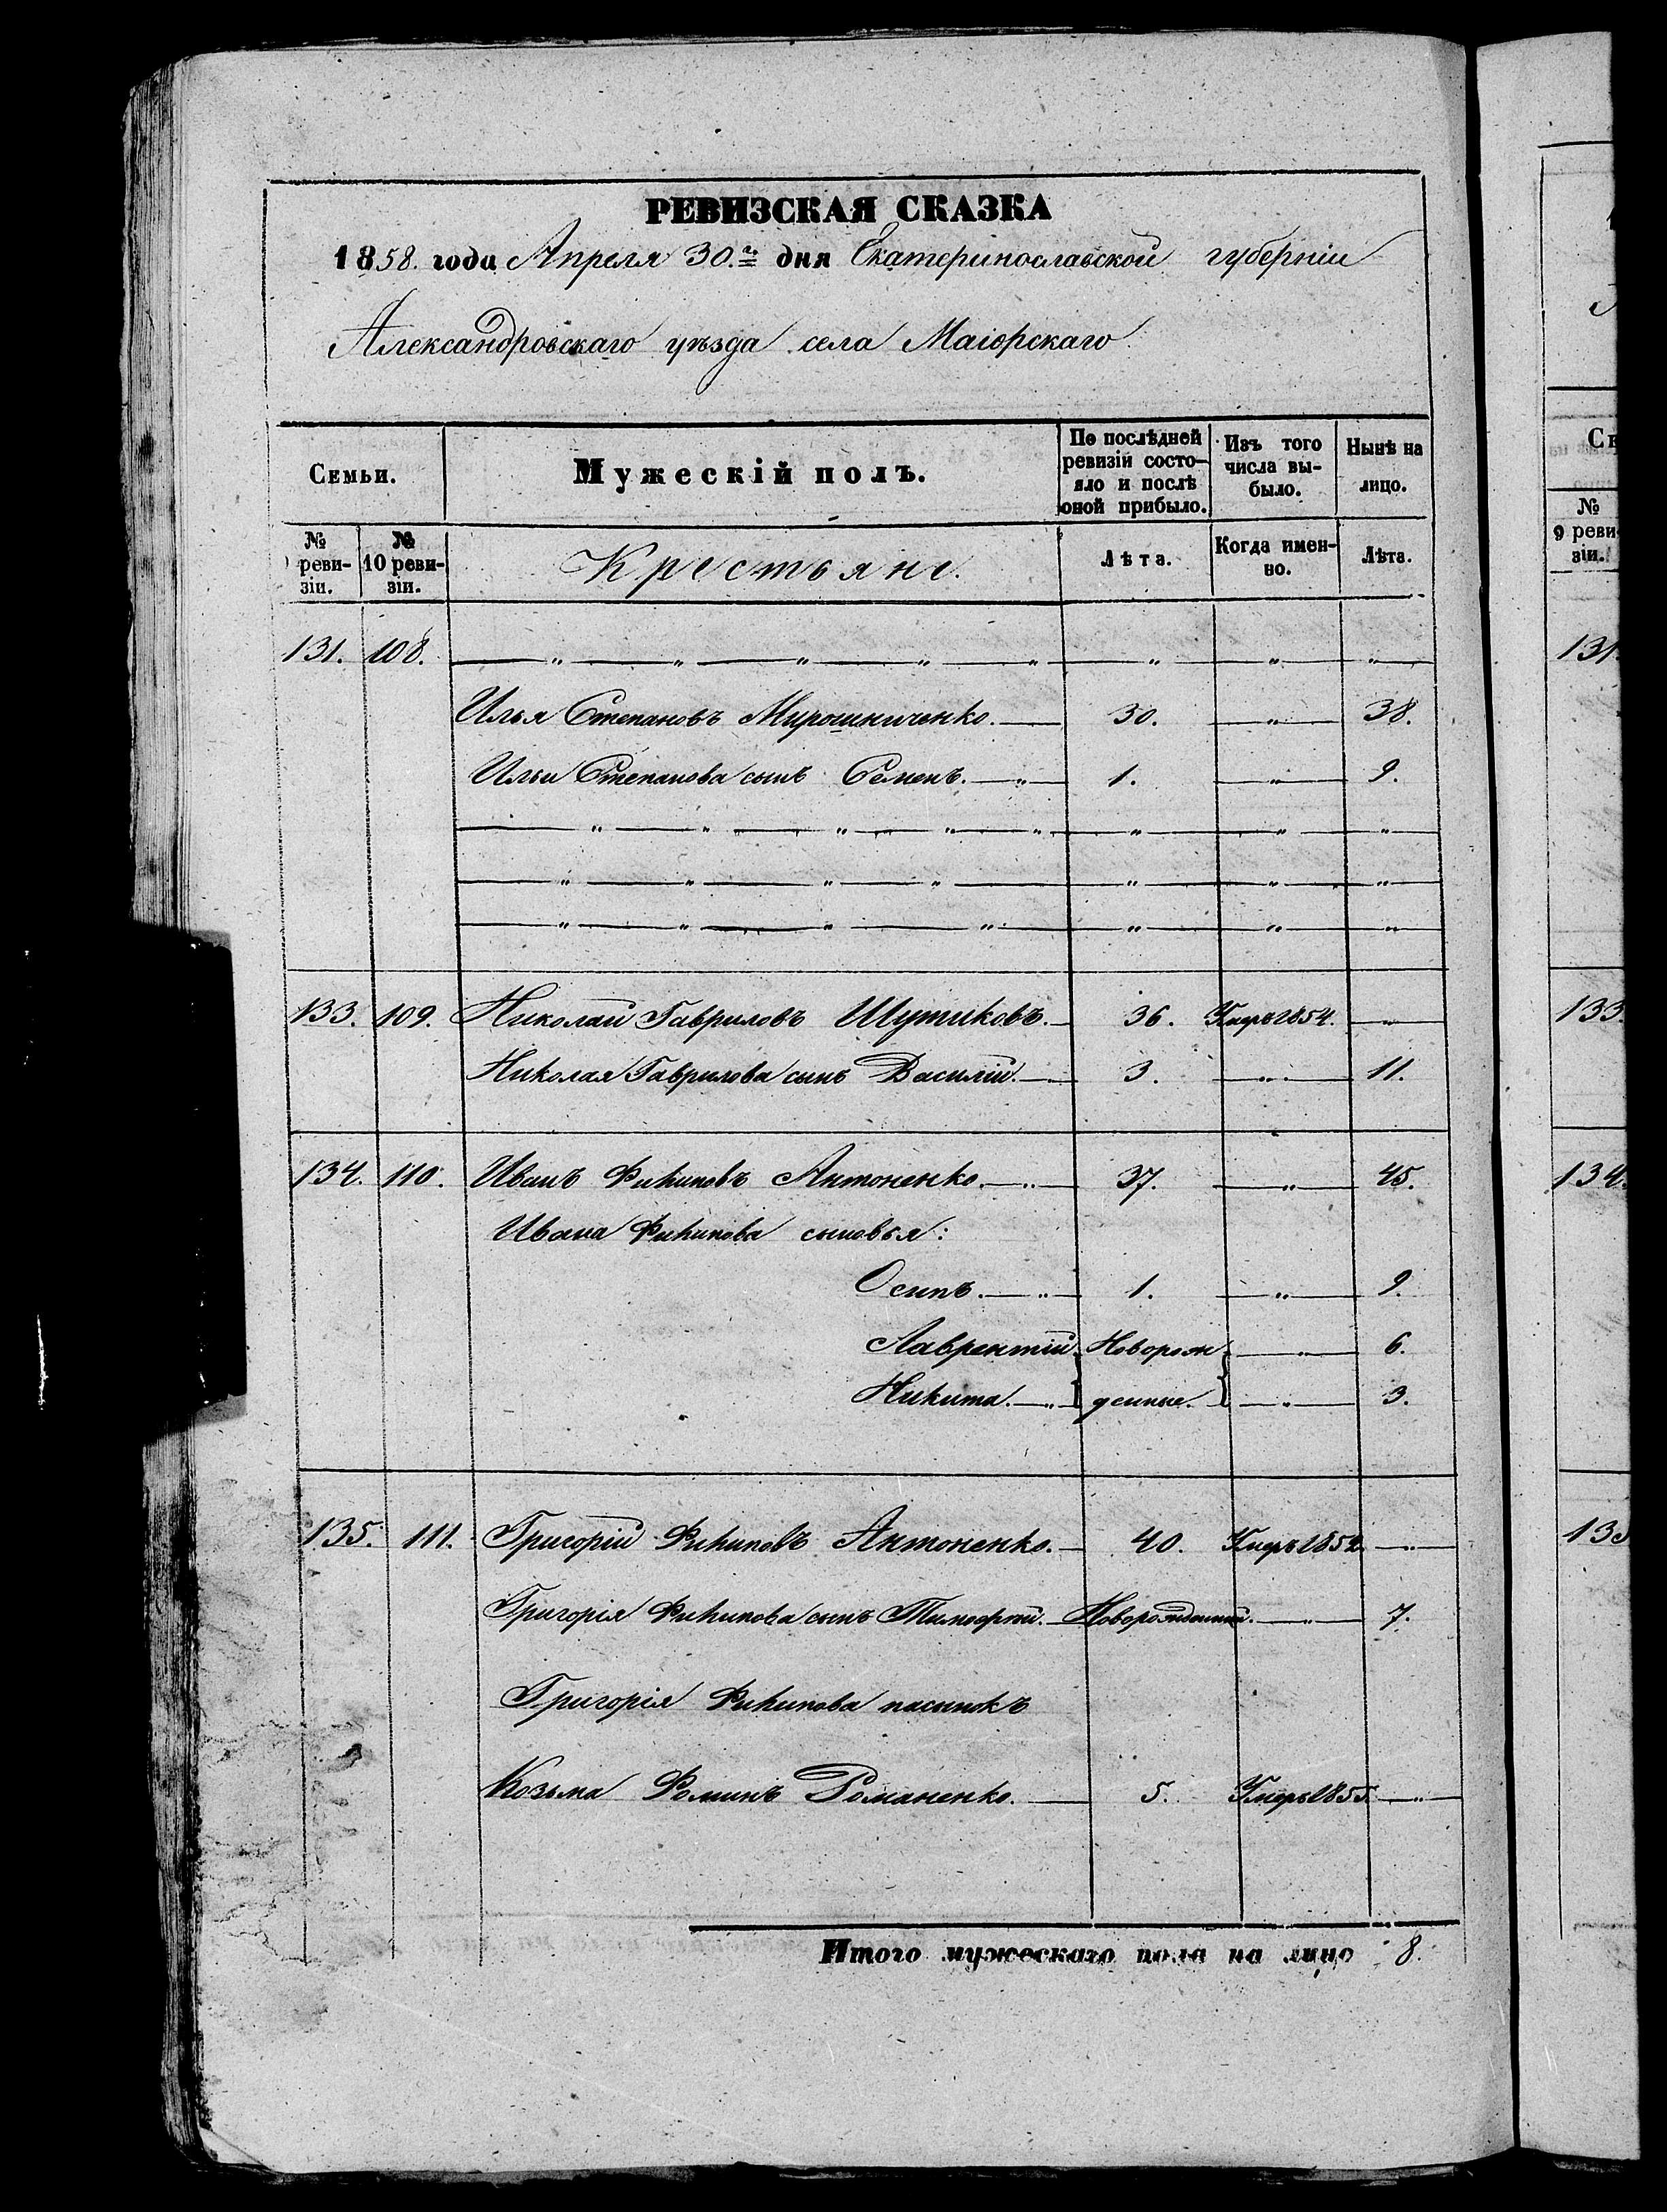 РЕВИЗСКАЯ СКАЗКА
1858. года Апреля 30.го дня Екатеринославской губерніи
Александровскаго уѣзда села Маіорскаго
Семьи. Мужескій полъ. По послѣдней ревизіи состояло и послѣ оной прибыло. Изъ того числа выбыло. Нынѣ на лицо.
№ ревизіи. № 10 ревизіи. Крестьяне. Лѣта. Когда именно. Лѣта.
131. 108. — " — " — " — " — " — " — " — "
Илья Степановъ Мирошниченко. — 30. — " — 38.
Ильи Степанова сынъ Семенъ. — " — 1. — " — 9.
— " — " — " — " — " — " — " — "
— " — " — " — " — " — " — "
— " — " — " — " — " — " — "
133. 109. Николай Гавриловъ Шутиковъ. — 36. Умеръ 1854. — "
Николая Гаврилова сынъ Василій. — 3. — " — 11.
134. 110. Иванъ Филиповъ Антоненко. — " — 37. — " — 45.
Ивана Филипова сыновья:
Осипъ. — " — 1. — " — 9.
Лаврентій. Новорож — " — 6.
Никита. — " } денные. } — " — 3.
135. 111. Григорій Филиповъ Антоненко. — 40. Умеръ 1852. — " —
Григорія Филипова сынъ Тимофей. — Новорожденный. — " — 7.
Григорія Филипова пасынокъ
Козьма Фоминъ Романенко. — 5. Умеръ 1855. — " —
Итого мужескаго пола на лицо 8.
Се
№
9 ревизіи.
131.
133.
134.
135